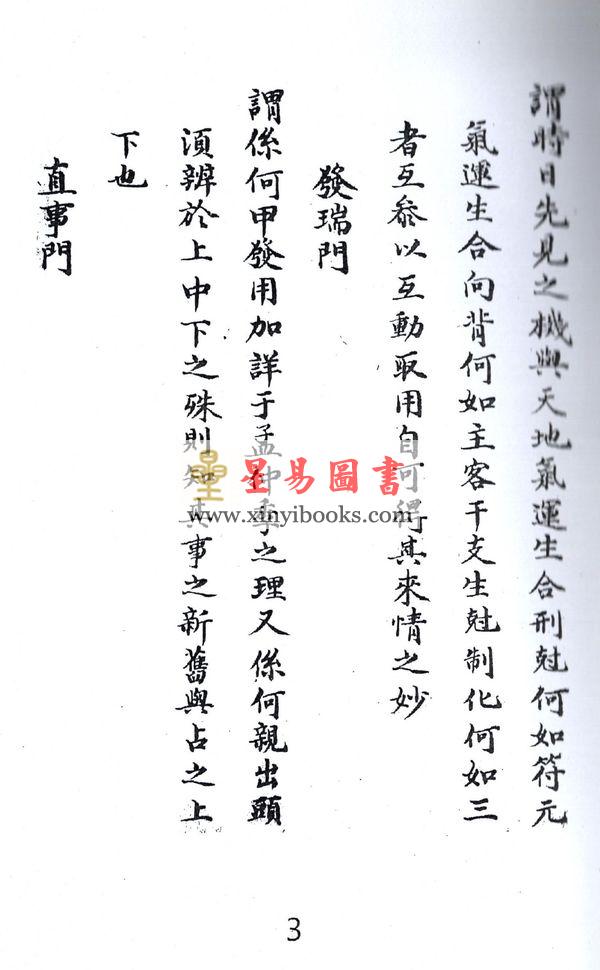 謂時日先見之機與天地氣運生合刑尅何如符元
氣運生合向背何如主客干支生尅制化何如三
者互叅以互動取用自可得其來情之妙
發瑞門
謂係何甲發用加詳于孟仲季之理又係何親出頭
須辨於上中下之殊則知其事之新舊與占之上
下也
直事門
星易圖書
www.xinyibooks.com
3